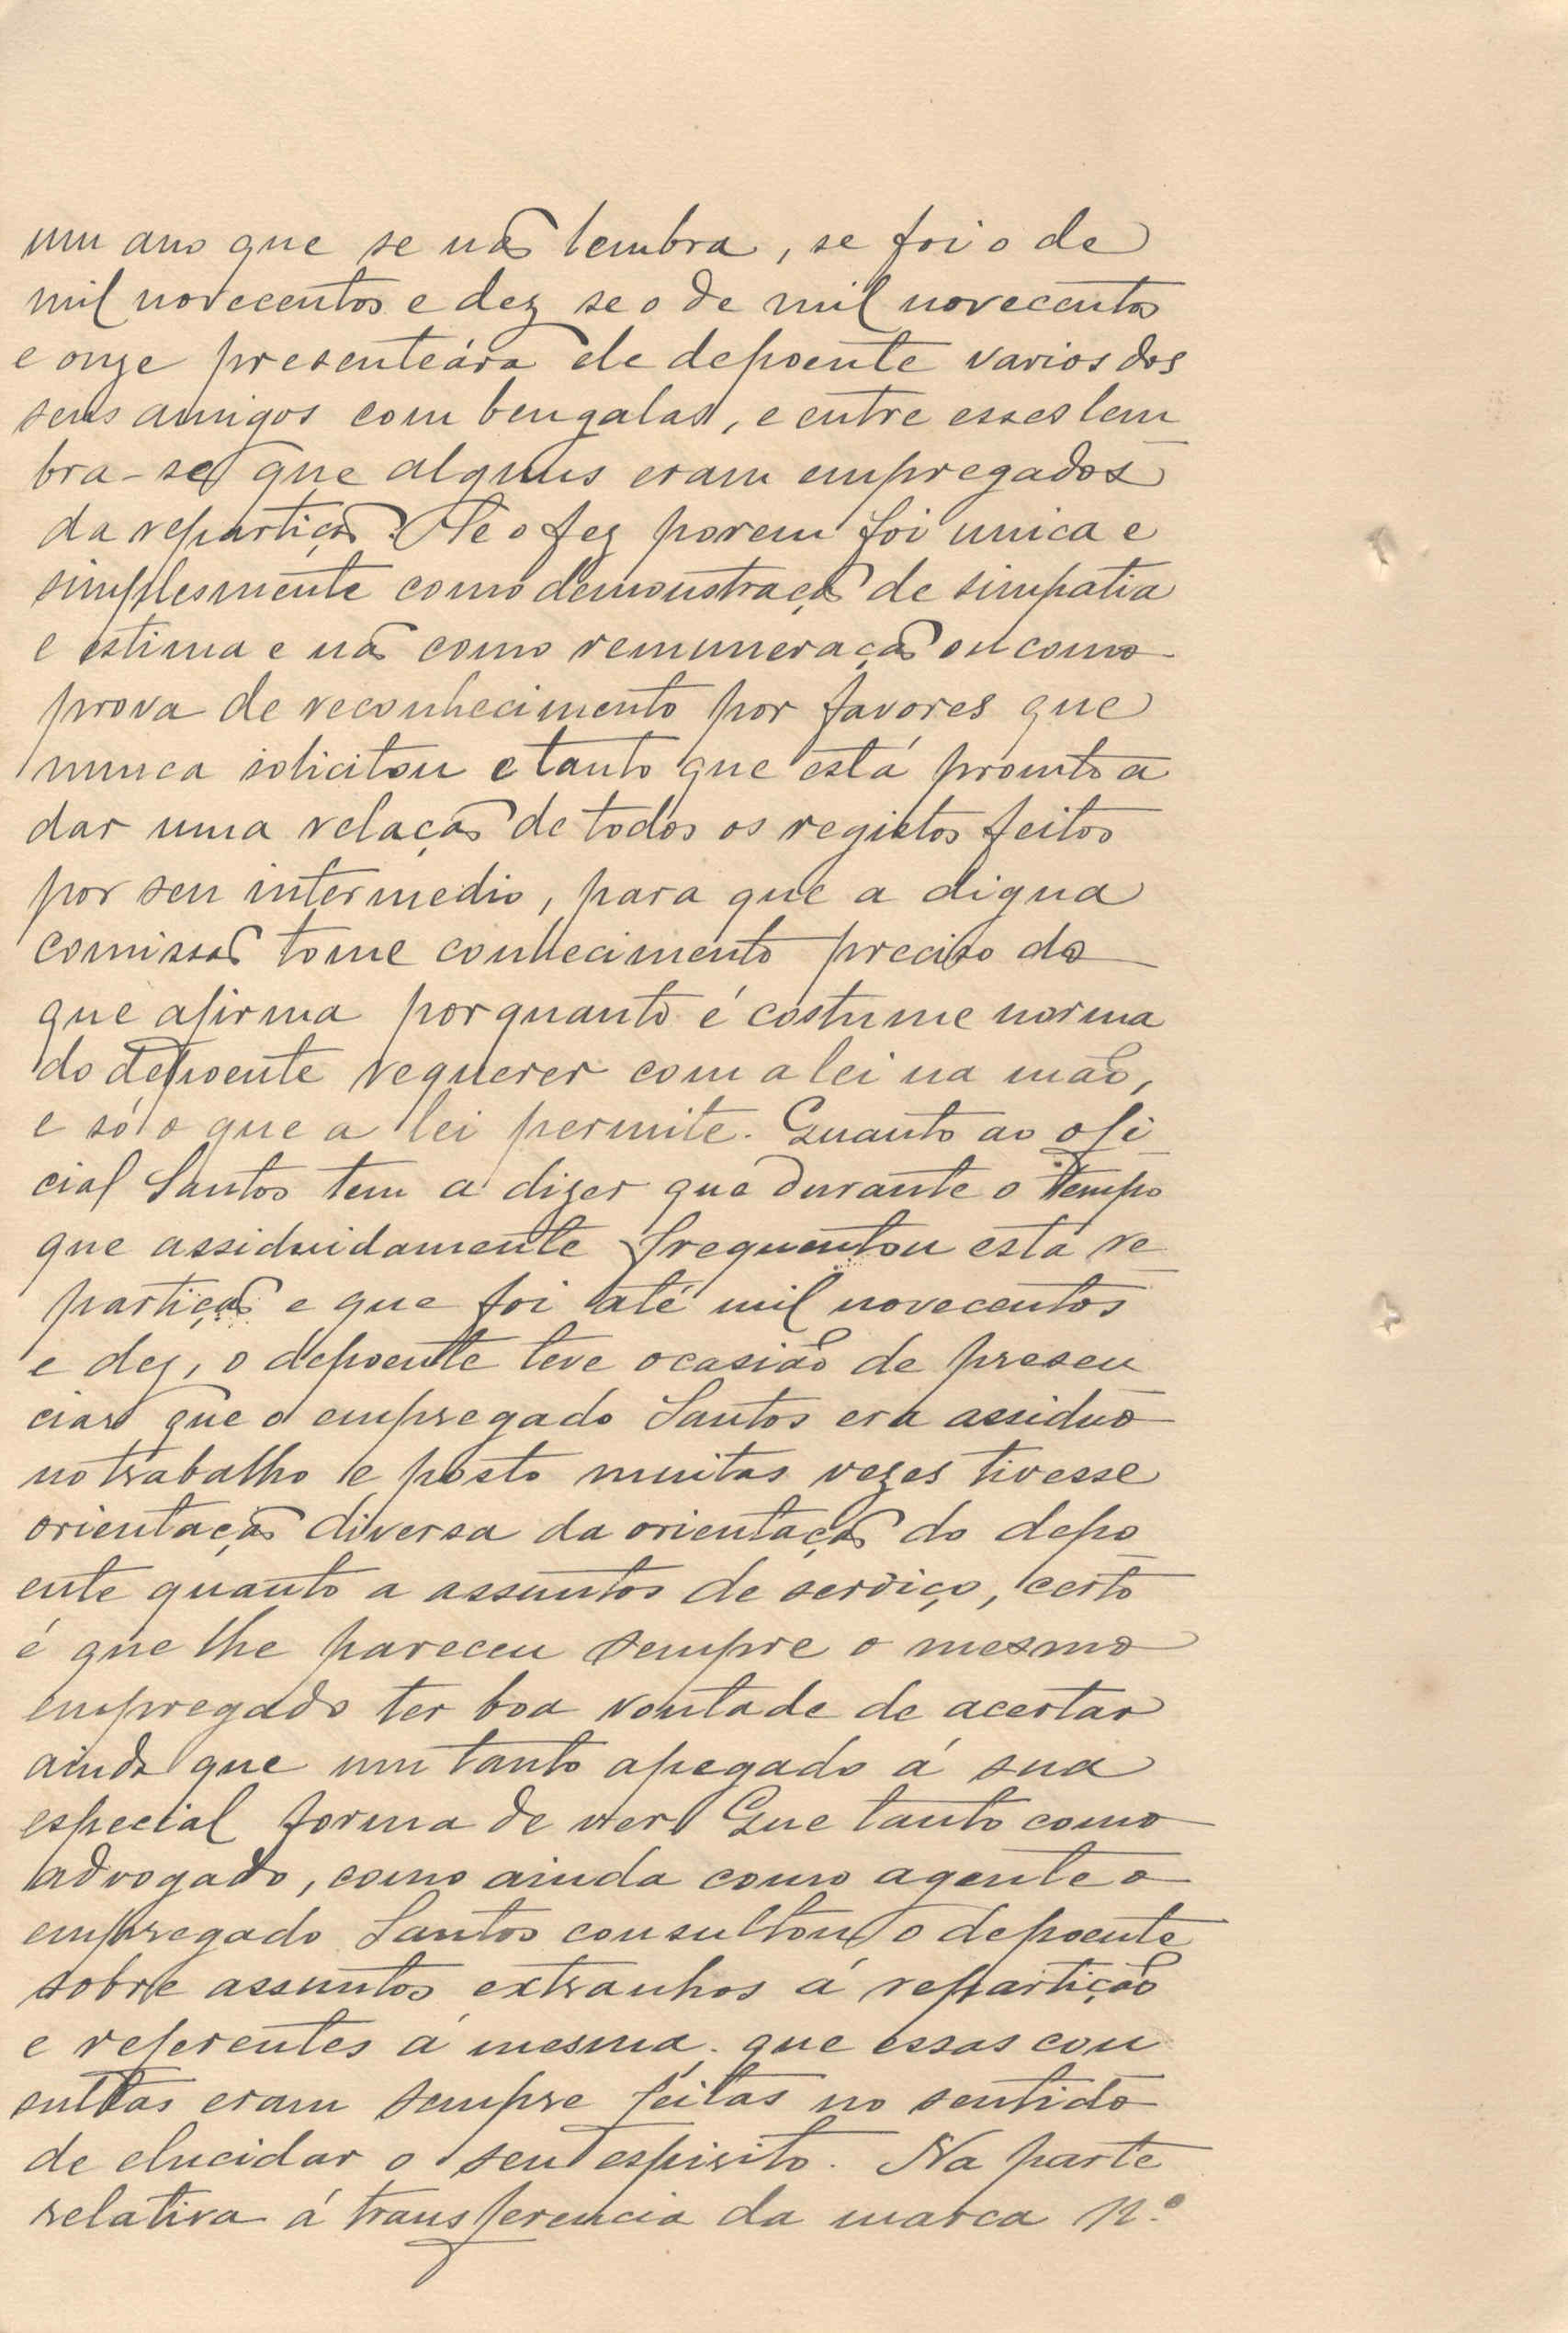 um ano que se não lembra, se foi o de
mil novecentos e dez se o de mil novecentos
e onze presenteára ele depoente varios dos
seus amigos com bengalas, e entre esses lem
bra-se que alguns eram empregados
da repartição. Se o fez porem foi unica e
simplesmente como demonstração de simpatia
e estima e não como remuneração ou como
prova de reconhecimento por favores que
nunca solicitou e tanto que está pronto a
dar uma relação de todos os registos feitos
por seu intermedio, para que a digna
comissão tome conhecimento preciso do
que afirma porquanto é costume norma
do depoente requerer com a lei na mão,
e só o que a lei permite. Quanto ao ofi
cial Santos tem a dizer que durante o tempo
que assiduidamente frequentou esta re
partição e que foi até mil novecentos
e dez, o depoente teve ocasião de presen
ciar que o empregado Santos era assiduo
no trabalho e posto muitas vezes tivesse
orientação diversa da orientação do depo
ente quanto a assuntos de serviço, certo
é que lhe pareceu sempre o mesmo
empregado ter boa vontade de acertar
ainda que um tanto apegado á sua
especial forma de ver. Que tanto como
advogado, como ainda como agente o
empregado Santos consultou o depoente
sobre assuntos extranhos á repartição
e referentes á mesma. que essas con
sultas eram sempre feitas no sentido
de elucidar o seu espirito. Na parte
relativa á transferencia da marca n.º